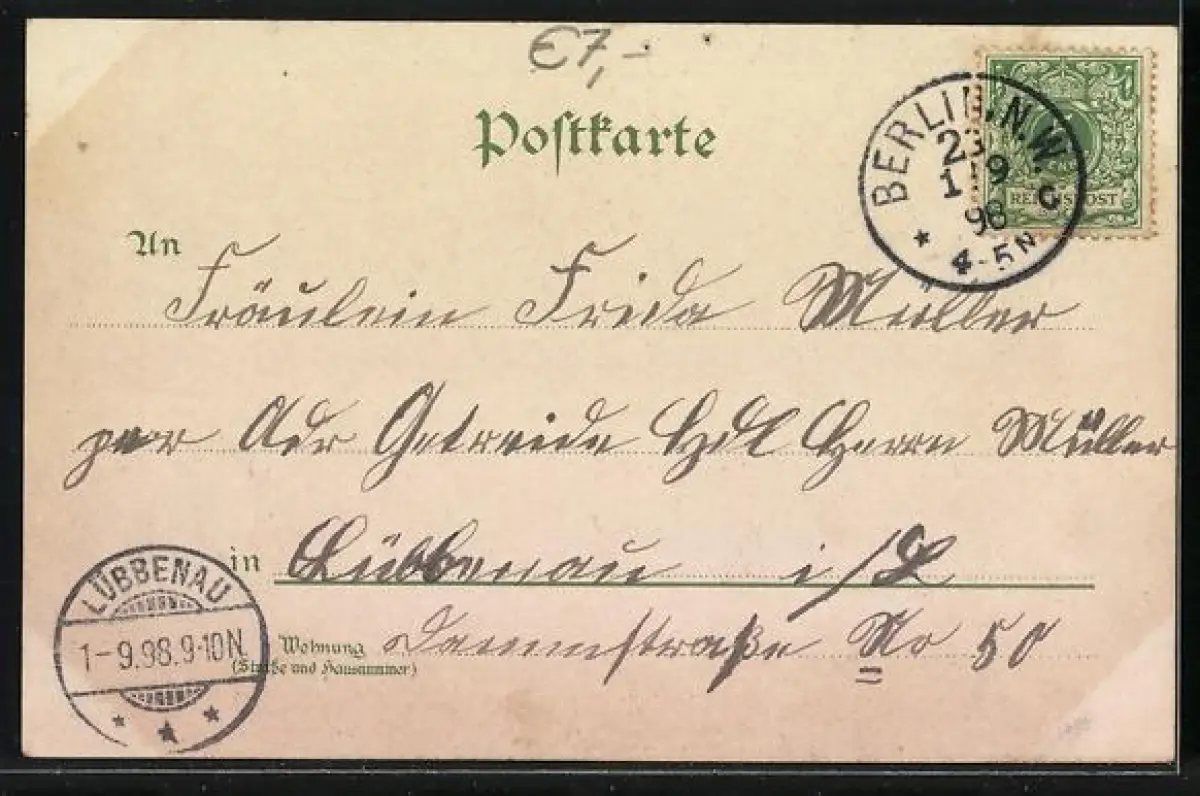 €7,-
Postkarte
BERLIN, N.W.
23
1 9
98
4-5N
REICHSPOST
An
Fräulein Frida Müller
per Adr Getreide Hdl Herrn Müller
in Lübbenau i/L
Wohnung Dammstraße No 50
(Straße und Hausnummer)
LÜBBENAU
1-9.98.9-10N.